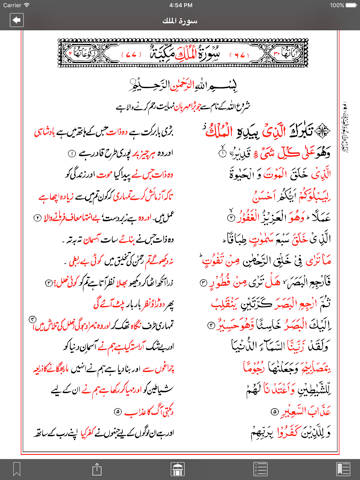 Carrier
4:54 PM
100%
سورة الملك
سُوْرَةُ الْمُلْكِ مَكِّيَّةٌ
(۶۷)
(۷۷)
بِسْمِ اللهِ الرَّحْمٰنِ الرَّحِيْمِ
شروع اللہ کے نام سے جو بڑا مہربان نہایت رحم کرنے والا ہے
تَبٰرَكَ الَّذِىْ بِيَدِهِ الْمُلْكُ
وَهُوَ عَلٰى كُلِّ شَىْءٍ قَدِيْرُ ۱
الَّذِىْ خَلَقَ الْمَوْتَ وَ الْحَيٰوةَ
لِيَبْلُوَكُمْ اَيُّكُمْ اَحْسَنُ
عَمَلًا ؕ وَهُوَ الْعَزِيْزُ الْغَفُوْرُ ۲
الَّذِىْ خَلَقَ سَبْعَ سَمٰوٰتٍ طِبَاقًا ؕ
مَا تَرٰى فِىْ خَلْقِ الرَّحْمٰنِ مِنْ تَفٰوُتٍ ؕ
فَارْجِعِ الْبَصَرَ ۙ هَلْ تَرٰى مِنْ فُطُوْرٍ ۳
ثُمَّ ارْجِعِ الْبَصَرَ كَرَّتَيْنِ يَنْقَلِبْ
اِلَيْكَ الْبَصَرُ خَاسِئًا وَّهُوَ حَسِيْرٌ ۴
وَلَقَدْ زَيَّنَّا السَّمَآءَ الدُّنْيَا
بِمَصَابِيْحَ وَجَعَلْنٰهَا رُجُوْمًا
لِّلشَّيٰطِيْنِ وَاَعْتَدْنَا لَهُمْ
عَذَابَ السَّعِيْرِ ۵
وَ لِلَّذِيْنَ كَفَرُوْا بِرَبِّهِمْ
بڑی بابرکت ہے وہ ذات جس کے ہاتھ میں ہے بادشاہی
اور وہ ہر چیز پر پوری طرح قادر ہے ۱
وہ ذات جس نے پیدا کیا موت اور زندگی کو
تاکہ آزمائش کرے تمہاری کہ کون تم میں سے زیادہ اچھا ہے
عمل میں۔ اور وہ ہے زبردست، بے انتہا معاف فرمانے والا ۲
وہ ذات جس نے بنائے سات آسمان تہ بہ تہ۔
نہ دیکھو گے تم رحمٰن کی تخلیق میں کوئی بے ربطی۔
ذرا آنکھ اٹھا کر دیکھو بھلا نظر آتا ہے تم کو کوئی خلل؟ ۳
پھر دوڑاؤ نظر بار بار پلٹ آئے گی
تمہاری طرف نگاہ تھک کر اور وہ نامراد ہو گی
اور بے شک آراستہ کیا ہے ہم نے آسمانِ دنیا کو
چراغوں سے اور بنا دیا ہے ہم نے انہیں مار بھگانے کا ذریعہ
شیاطین کو اور مہیا کر رکھا ہے ہم نے ان کے لیے
دہکتی آگ کا عذاب ۵
اور ہے ان لوگوں کے لیے جنہوں نے کفر کیا اپنے رب کے ساتھ